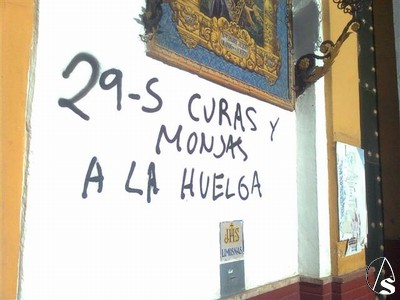 29-S CURAS Y
MONJAS
A LA HUELGA
JHS
LIMOSNAS